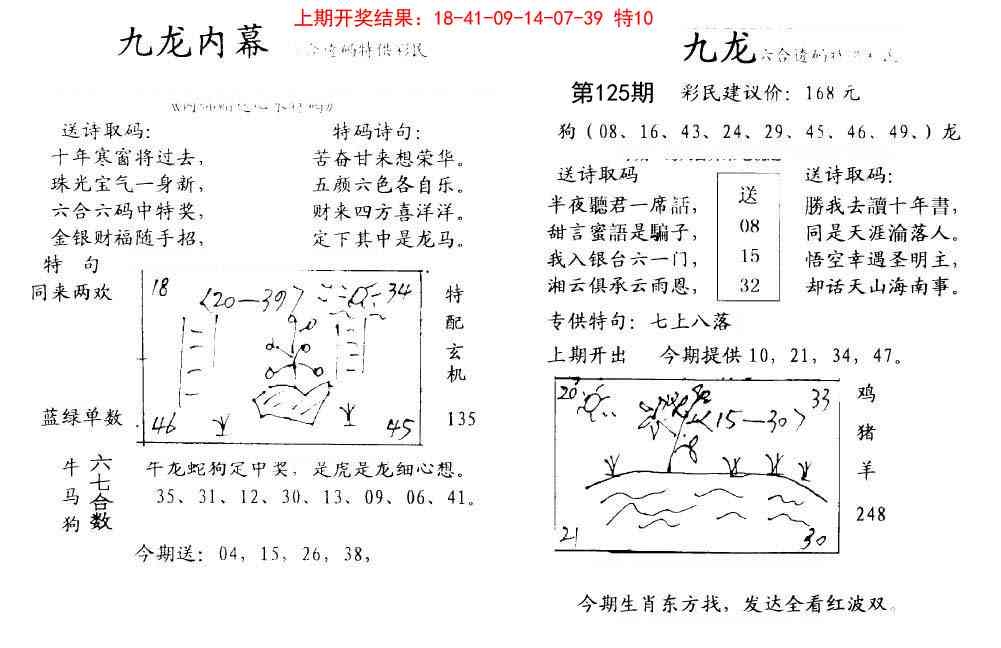 上期开奖结果：18-41-09-14-07-39 特10
九龙内幕
送诗取码：
十年寒窗将过去，
珠光宝气一身新，
六合六码中特奖，
金银财福随手招，
特码诗句：
苦奋甘来想荣华。
五颜六色各自乐。
财来四方喜洋洋。
定下其中是龙马。
特 句
同来两欢
蓝绿单数
18
〈20—39〉
34
46
45
特配玄机
135
牛马狗
六七合数
牛龙蛇狗定中奖，是虎是龙细心想。
35、31、12、30、13、09、06、41。
今期送：04，15，26，38，
九龙
第125期 彩民建议价：168元
狗（08、16、43、24、29、45、46、49、）龙
送诗取码
半夜聽君一席話，
甜言蜜語是騙子，
我入银台六一门，
湘云俱承云雨恩，
送
08
15
32
送诗取码：
勝我去讀十年書，
同是天涯淪落人。
悟空幸遇圣明主，
却话天山海南事。
专供特句：七上八落
上期开出 今期提供10，21，34，47。
20
〈15—30〉
33
21
30
鸡
猪
羊
248
今期生肖东方找，发达全看红波双。